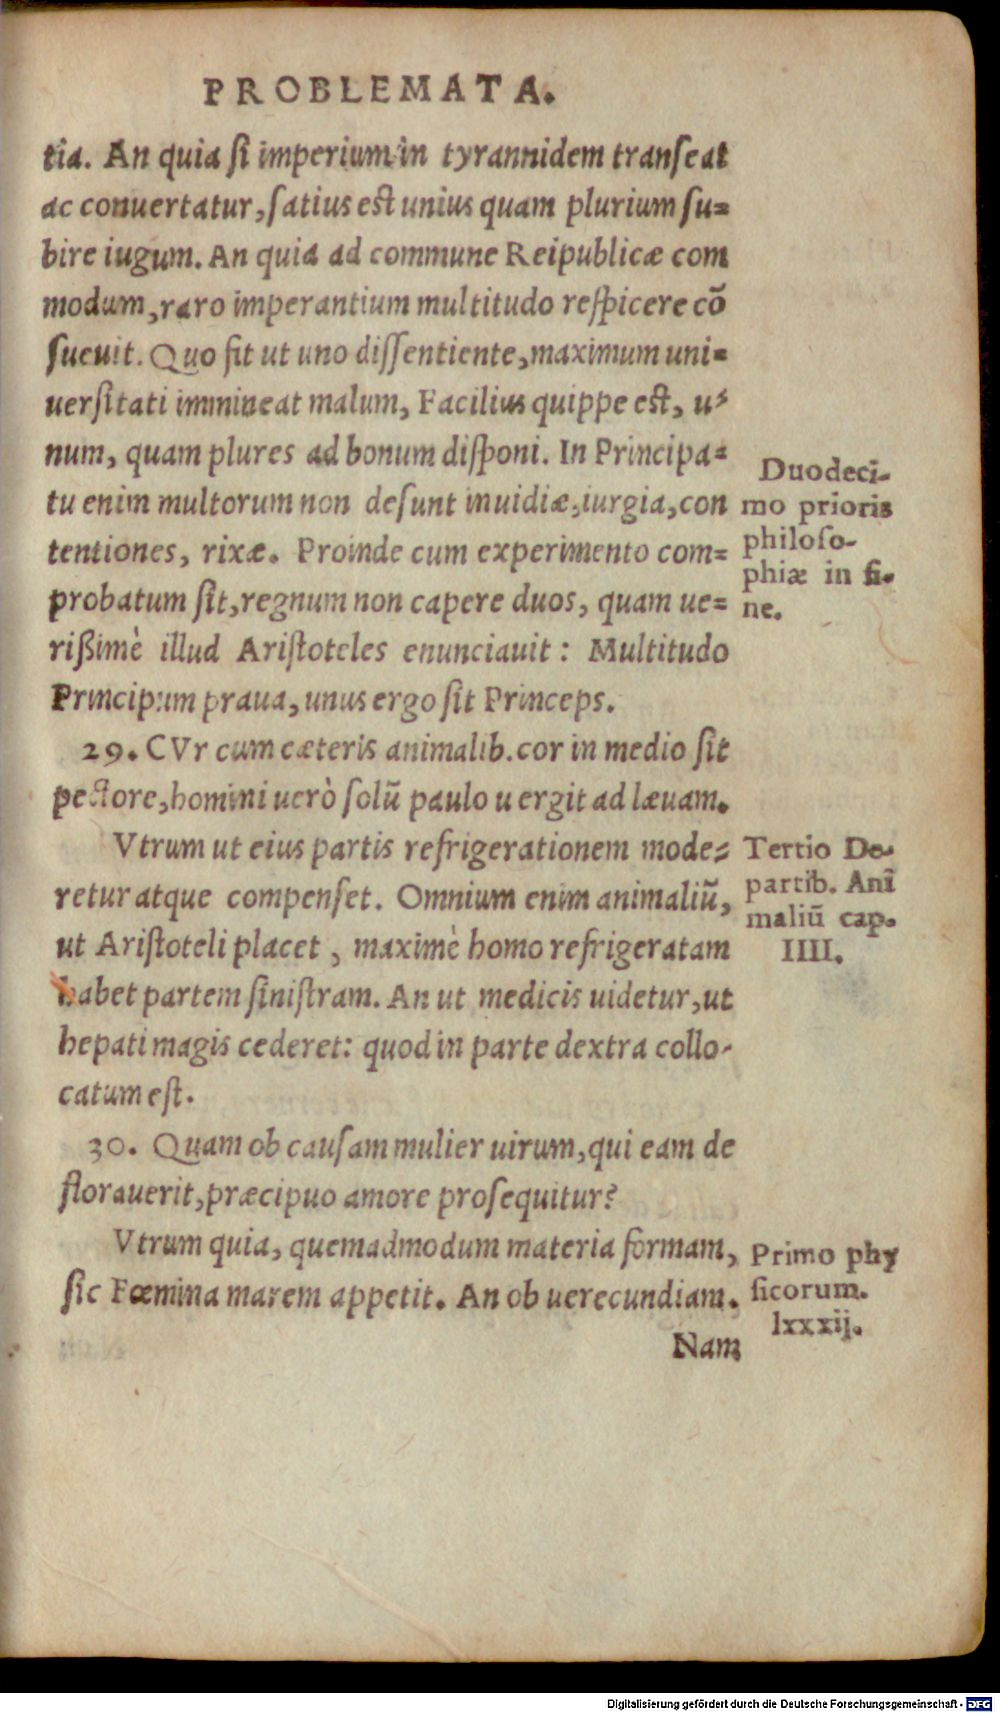 PROBLEMATA.
tia. An quia si imperium in tyrannidem transeat
ac conuertatur, satius est unius quam plurium su=
bire iugum. An quia ad commune Reipublicæ com
modum, raro imperantium multitudo respicere cõ
sueuit. Quo fit ut uno dissentiente, maximum uni=
uersitati immineat malum, Facilius quippe est, u=
num, quam plures ad bonum disponi. In Principa=
tu enim multorum non desunt inuidiæ, iurgia, con
tentiones, rixæ. Proinde cum experimento com=
probatum sit, regnum non capere duos, quam ue=
rißimè illud Aristoteles enunciauit: Multitudo
Principum praua, unus ergo sit Princeps.
Duodeci-
mo prioris
philoso-
phiæ in fi-
ne.
29. CVr cum cæteris animalib. cor in medio sit
pectore, homini uerò solũ paulo uergit ad læuam.
Vtrum ut eius partis refrigerationem mode=
retur atque compenset. Omnium enim animaliũ,
ut Aristoteli placet, maximè homo refrigeratam
habet partem sinistram. An ut medicis uidetur, ut
hepati magis cederet: quod in parte dextra collo-
catum est.
Tertio De-
partib. Ani
maliũ cap.
IIII.
30. Quam ob causam mulier uirum, qui eam de
florauerit, præcipuo amore prosequitur?
Vtrum quia, quemadmodum materia formam,
sic Fœmina marem appetit. An ob uerecundiam.
Primo phy
sicorum.
lxxxij.
Nam
Digitalisierung gefördert durch die Deutsche Forschungsgemeinschaft - DFG